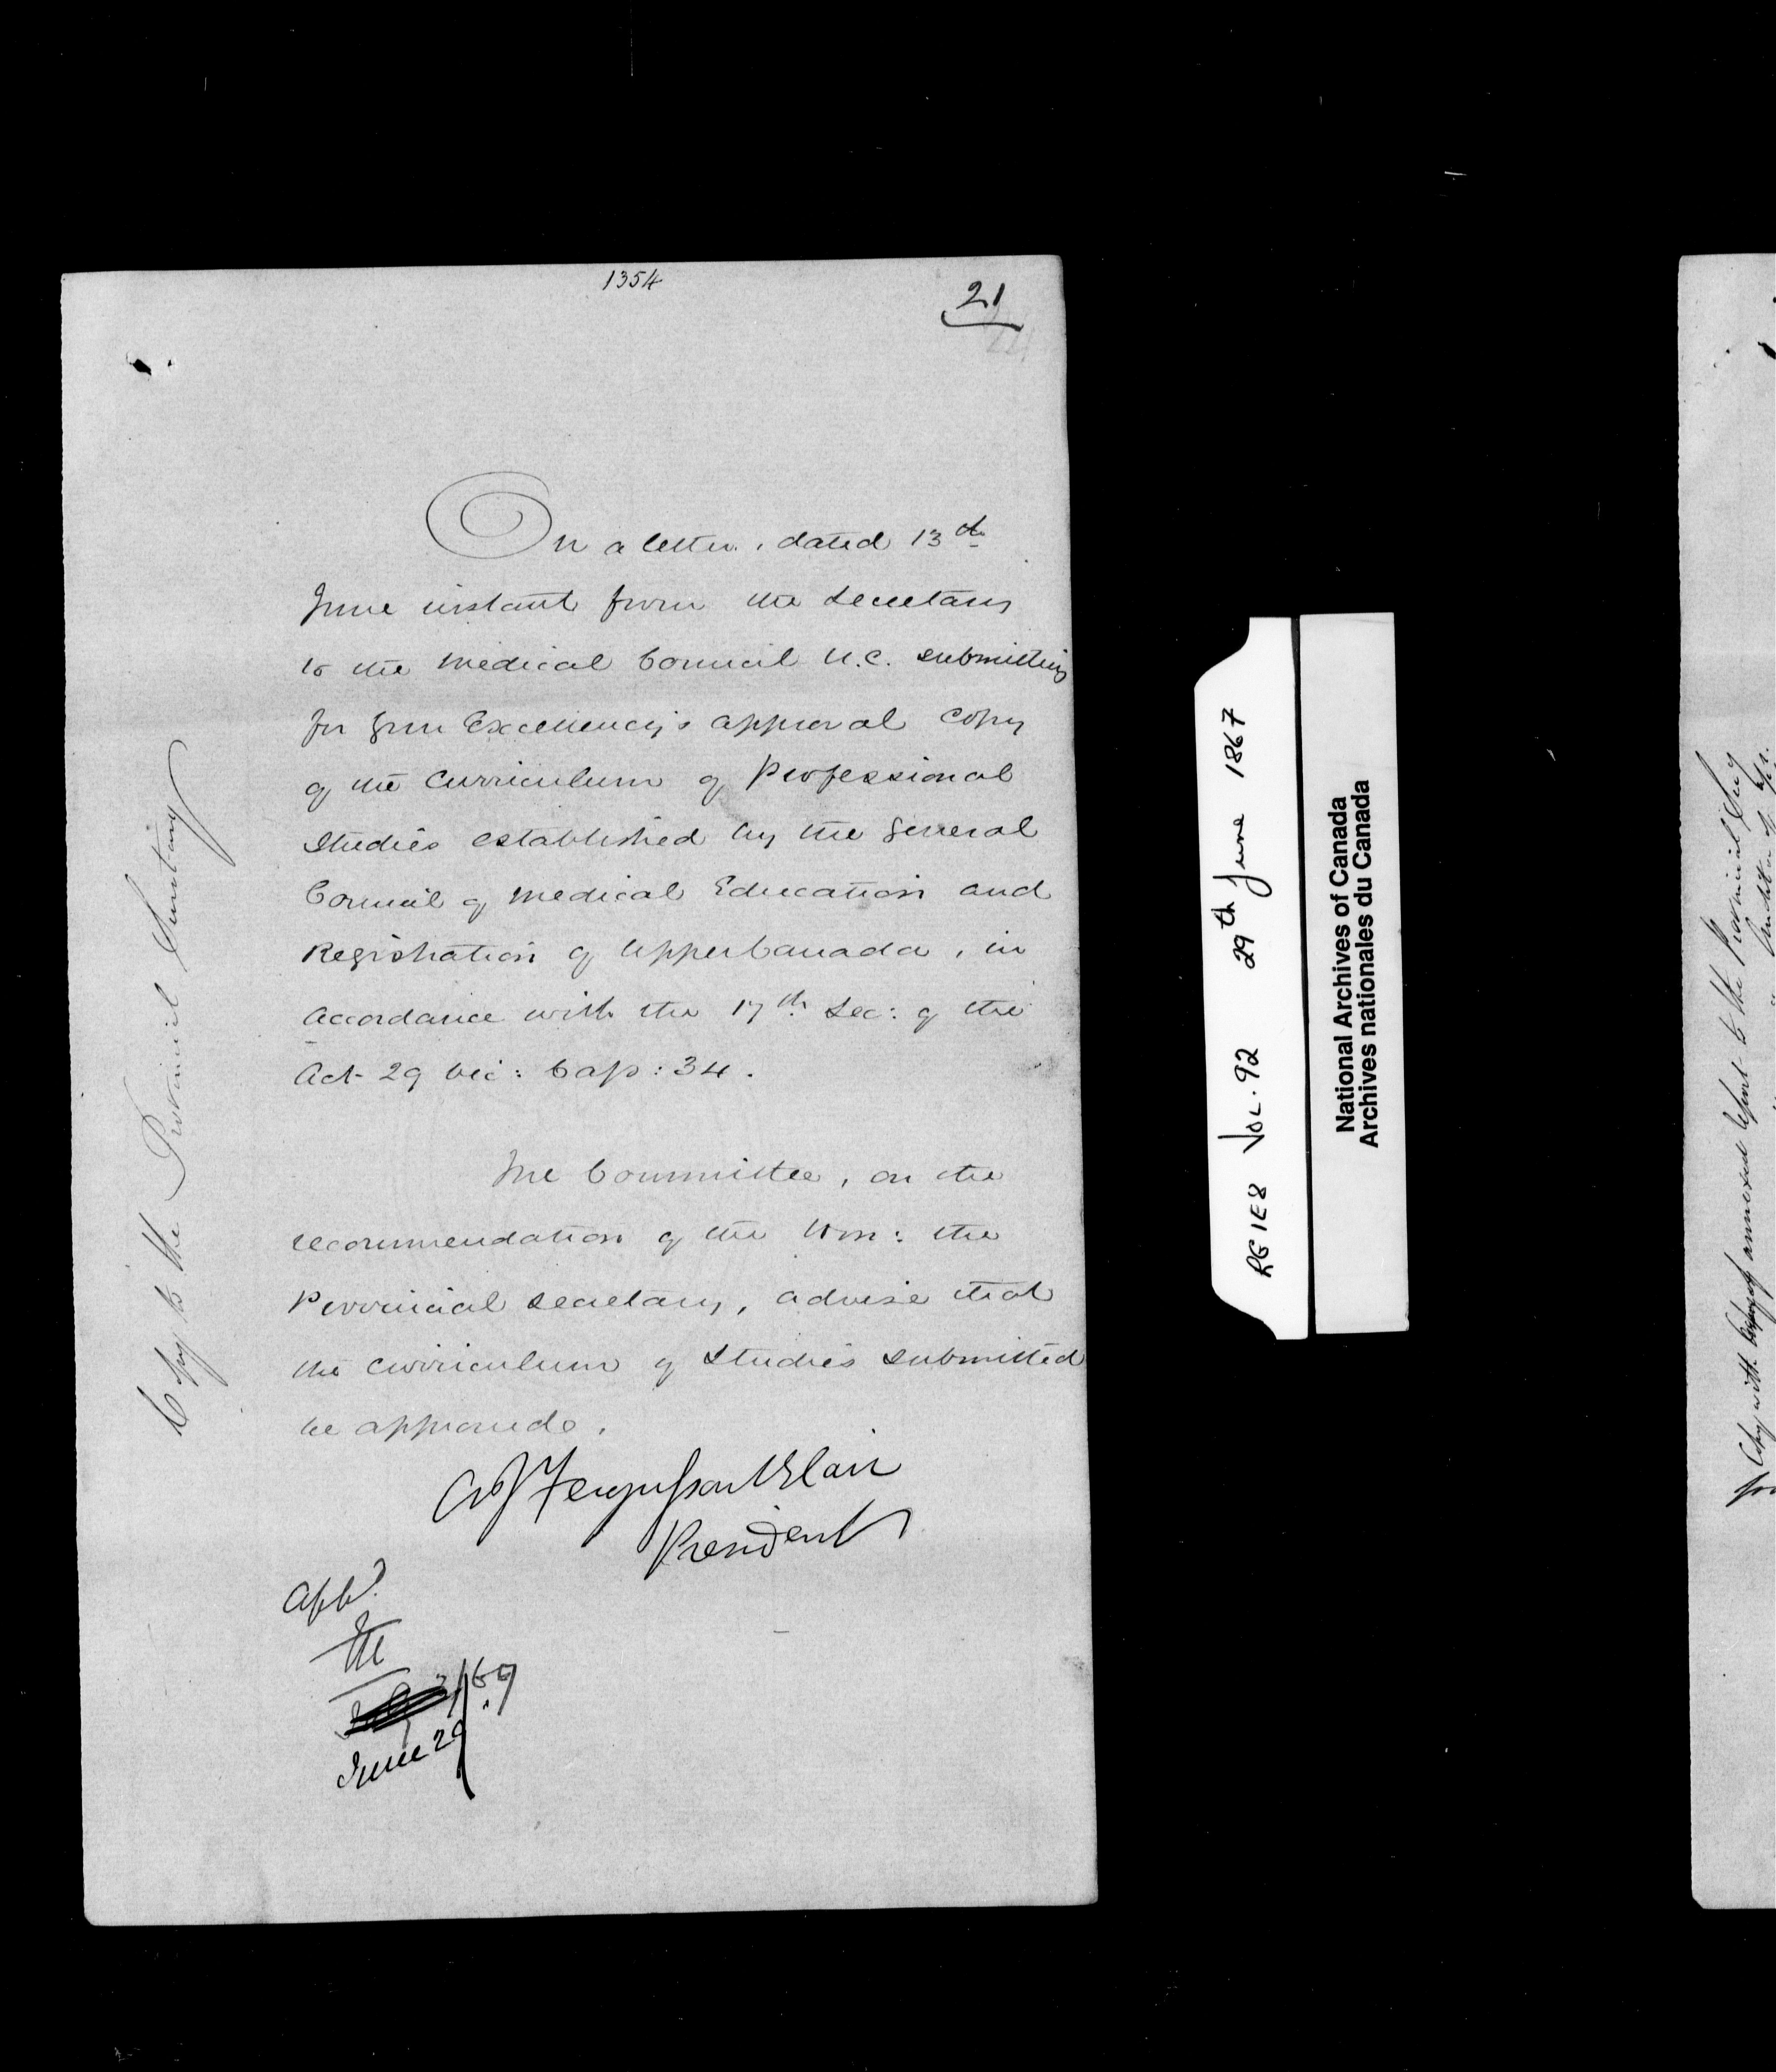 1354
21
On a letter, dated 13th
June instant from the Secretary
to the Medical Council U.C. submitting
for Your Excellency's approval copy
of the Curriculum of Professional
Studies established by the General
Council of Medical Education and
Registration of Upper Canada, in
accordance with the 17th Sec: of the
Act 29 Vic: Cap: 34.
The Committee, on the
recommendation of the Hon: the
Provincial Secretary, advise that
the curriculum of Studies submitted
be approved.
Fergusson Blair
President
Appd.
/67
June 29
Copy to the Provincial Secretary
RG1E8 VOL. 92 29th June 1867
National Archives of Canada
Archives nationales du Canada
Copy with annexed report to the Provincial Secy